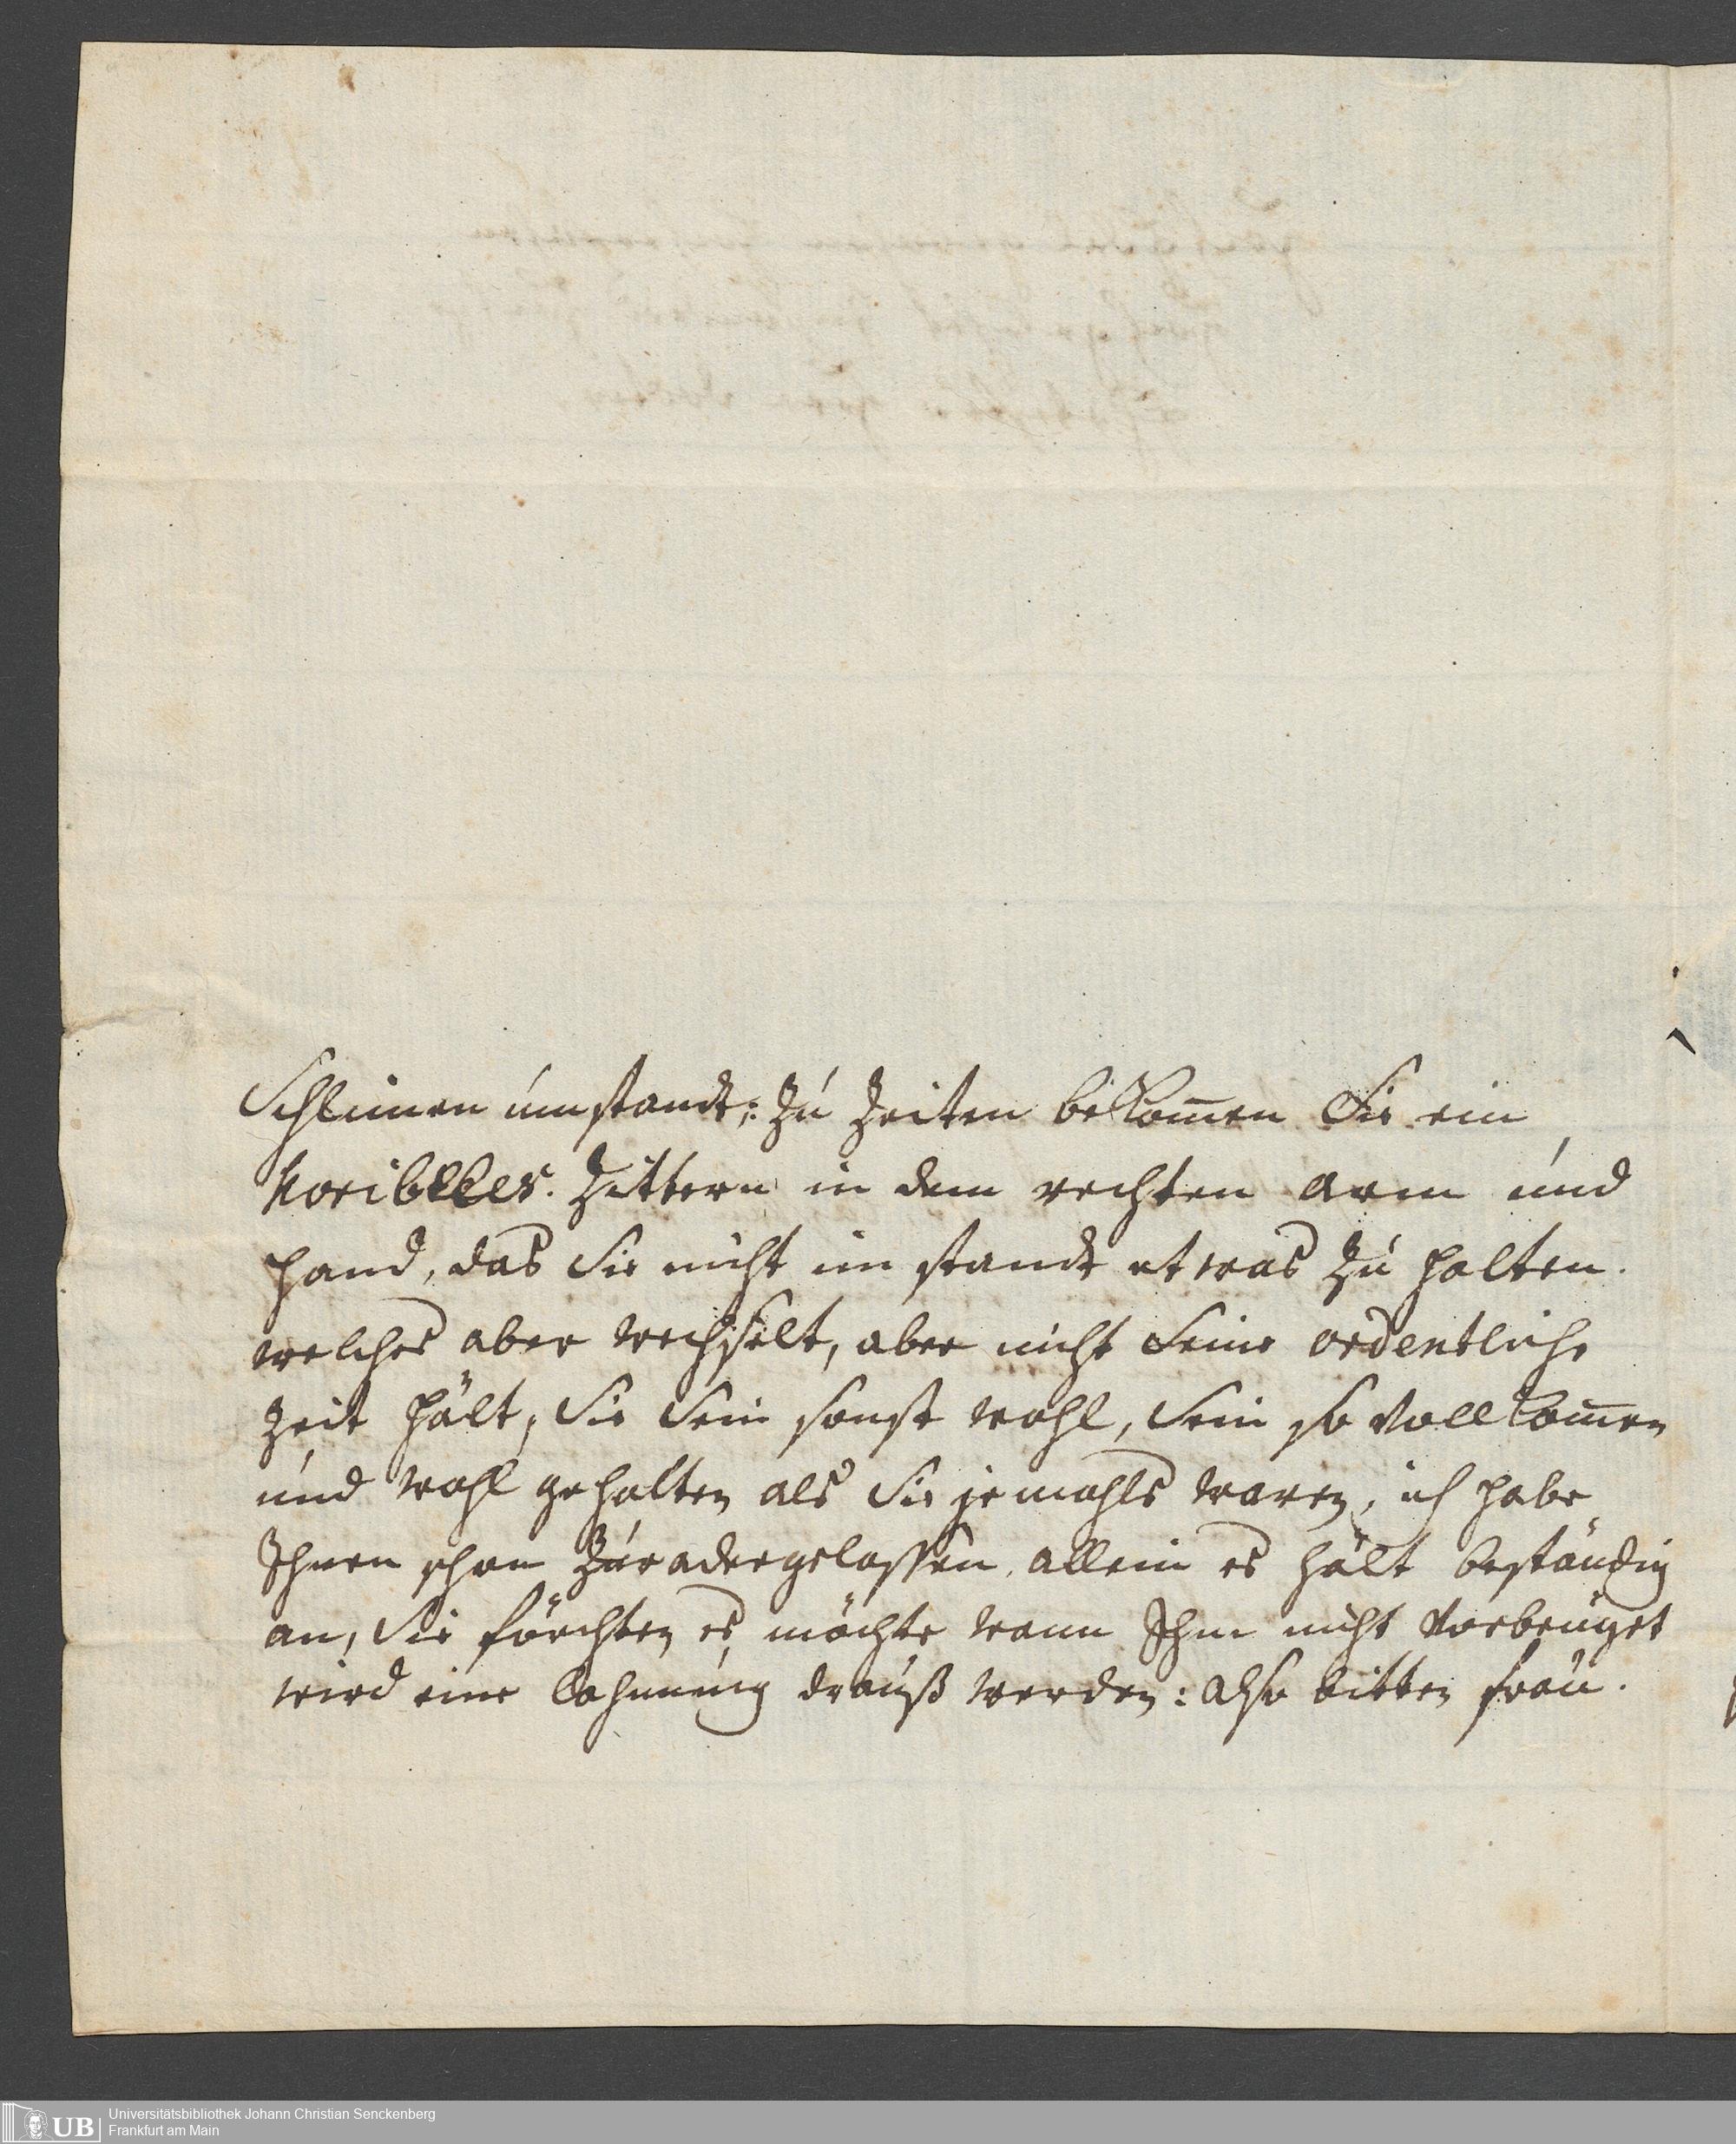 Schlimen umstandt: Zu Zeiten bekom̅en Sie ein
horiblles. Zittern in dem rechten arm und
hand, das Sie nicht im standt etwas Zu halten.
welches aber wechselt, aber nicht Seine ordentliche
Zeit hält, Sie Sein sonst wohl, Sein so Vollkom̅en
und wohl gehalten als Sie jemahls waren, ich habe
Ihnen schon Zuradergelassen, allein es hält beständig
an, Sie förchten es möchte wann Ihm nicht Vorbeuget
wird eine Lahmung drauß werden: also bitten frau.
UB
Universitätsbibliothek Johann Christian Senckenberg
Frankfurt am Main